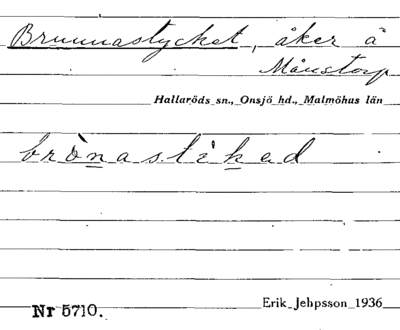 Brunnastycket, åker å
Månstorp
Hallaröds sn., Onsjö hd., Malmöhus län
brònastikad
Nr 5710.
Erik Jehpsson 1936